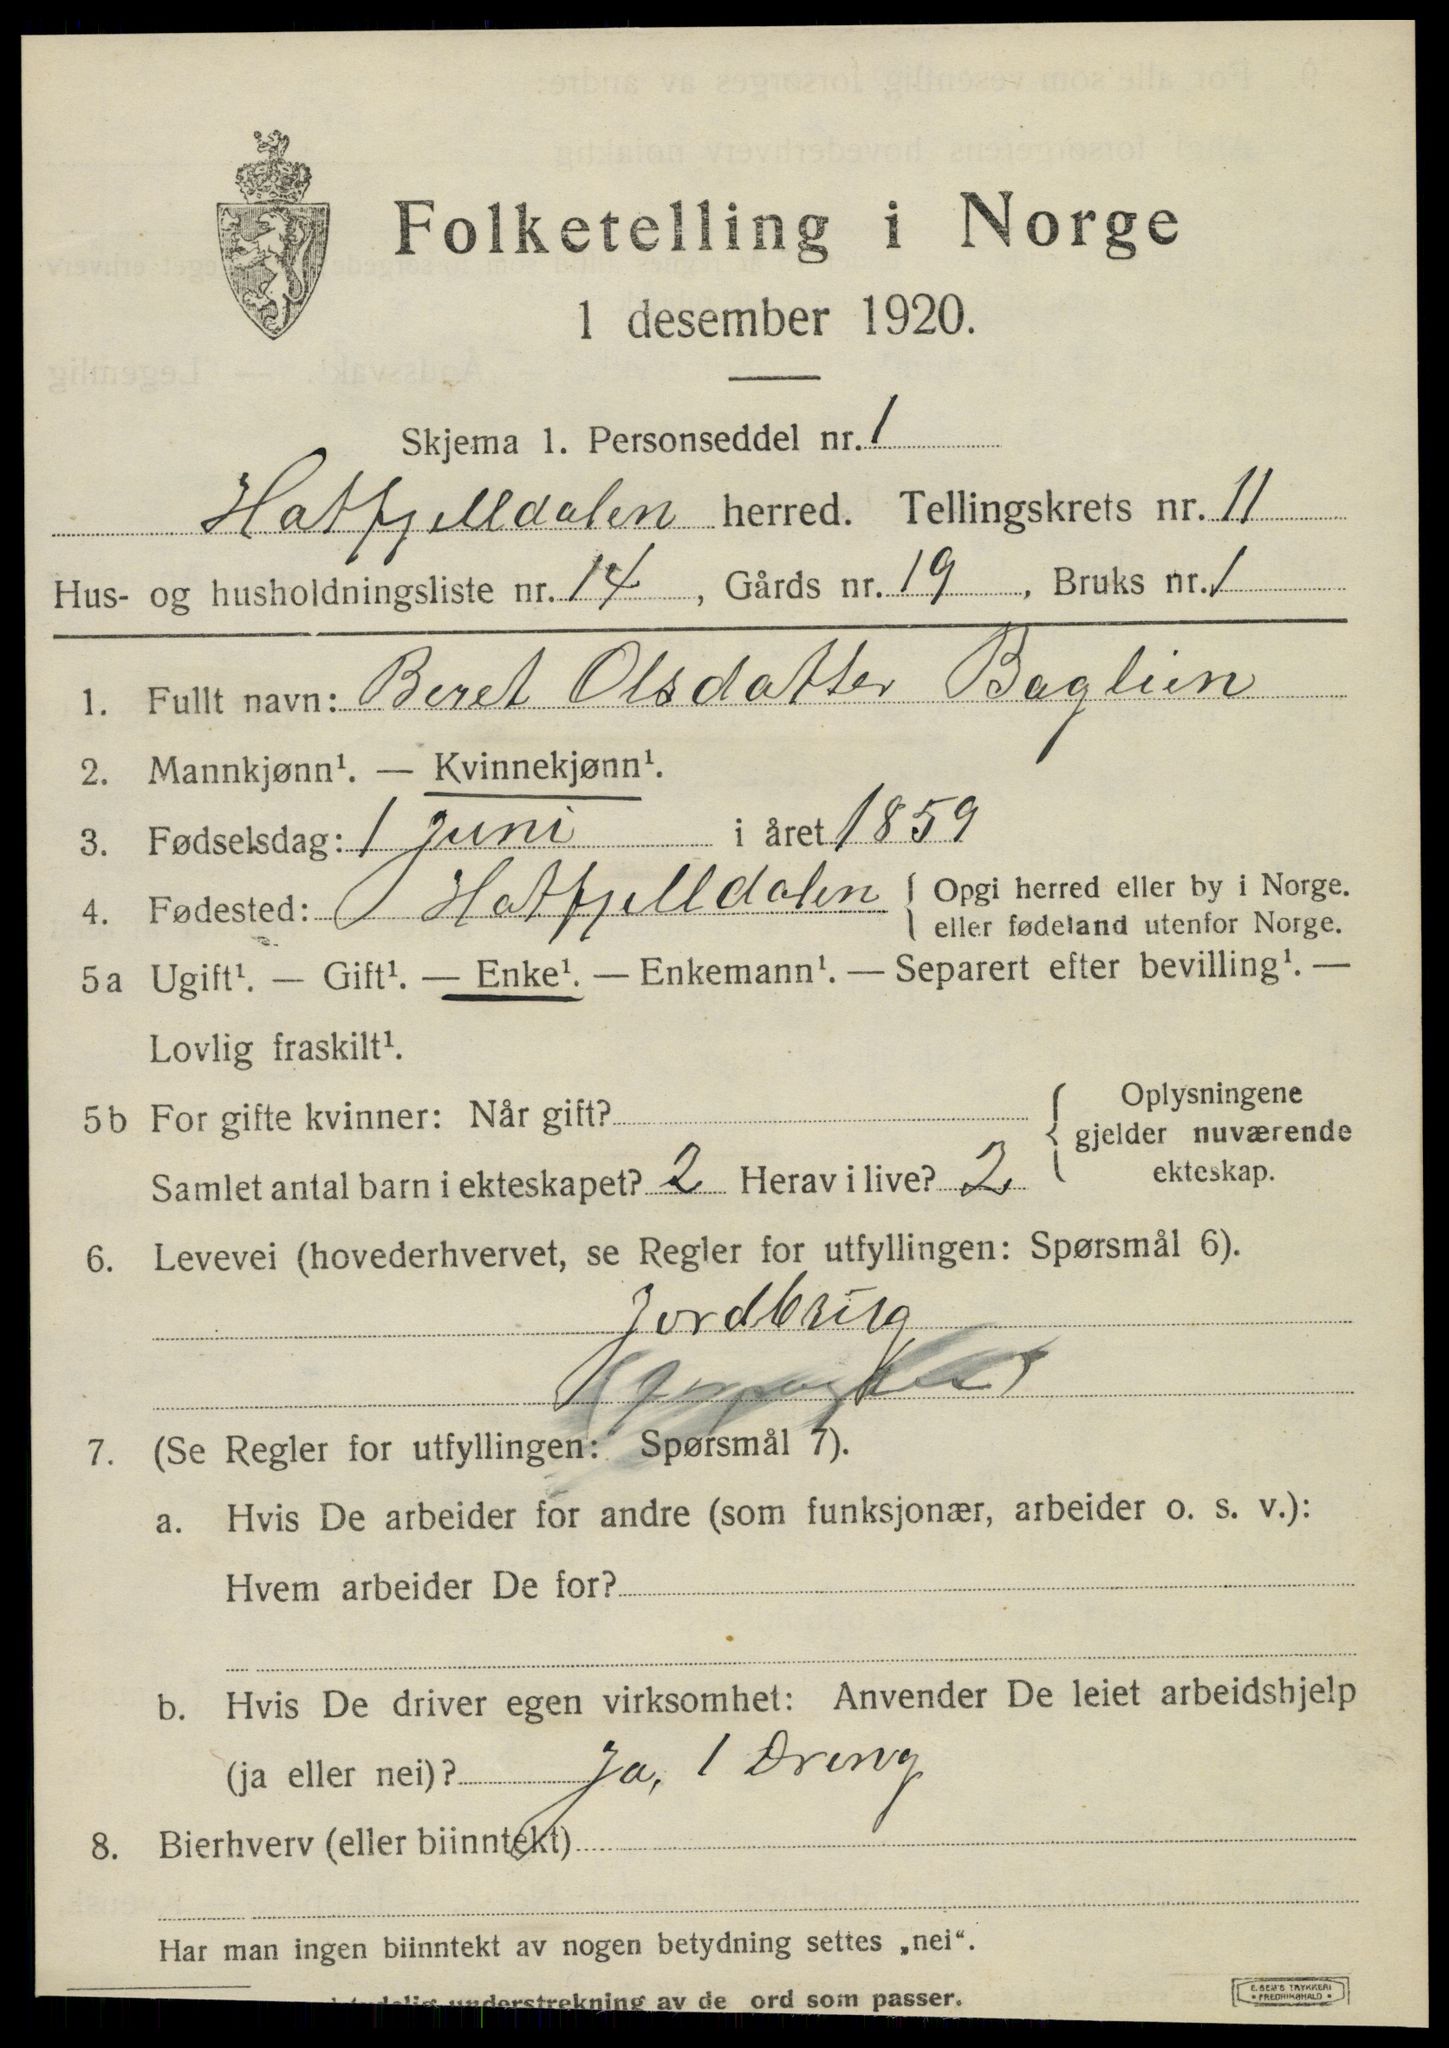 Folketelling i Norge
1 desember 1920.
Skjema 1. Personseddel nr. 1
Hatfjelldalen herred. Tellingskrets nr. 11
Hus- og husholdningsliste nr. 14, Gårds nr. 19, Bruks nr. 1
1. Fullt navn: Beret Olsdatter Baglien
2. Mannkjønn¹. — Kvinnekjønn¹.
3. Fødselsdag: 1 Juni i året 1859
4. Fødested: Hatfjelldalen { Opgi herred eller by i Norge.
eller fødeland utenfor Norge.
5a Ugift¹. — Gift¹. — Enke¹. — Enkemann¹. — Separert efter bevilling¹. —
Lovlig fraskilt¹.
5b For gifte kvinner: Når gift? { Oplysningene
gjelder nuværende
Samlet antal barn i ekteskapet? 2 Herav i live? 2 ekteskap.
6. Levevei (hovederhvervet, se Regler for utfyllingen: Spørsmål 6).
Jordbrug
7. (Se Regler for utfyllingen: Spørsmål 7).
a. Hvis De arbeider for andre (som funksjonær, arbeider o. s. v.):
Hvem arbeider De for?
b. Hvis De driver egen virksomhet: Anvender De leiet arbeidshjelp
(ja eller nei)? Ja, 1 Dreng
8. Bierhverv (eller biinntekt)
Har man ingen biinntekt av nogen betydning settes „nei“.
understrekning av de ord som passer.
E. SEM'S TRYKKERI
FREDRIKSHALD